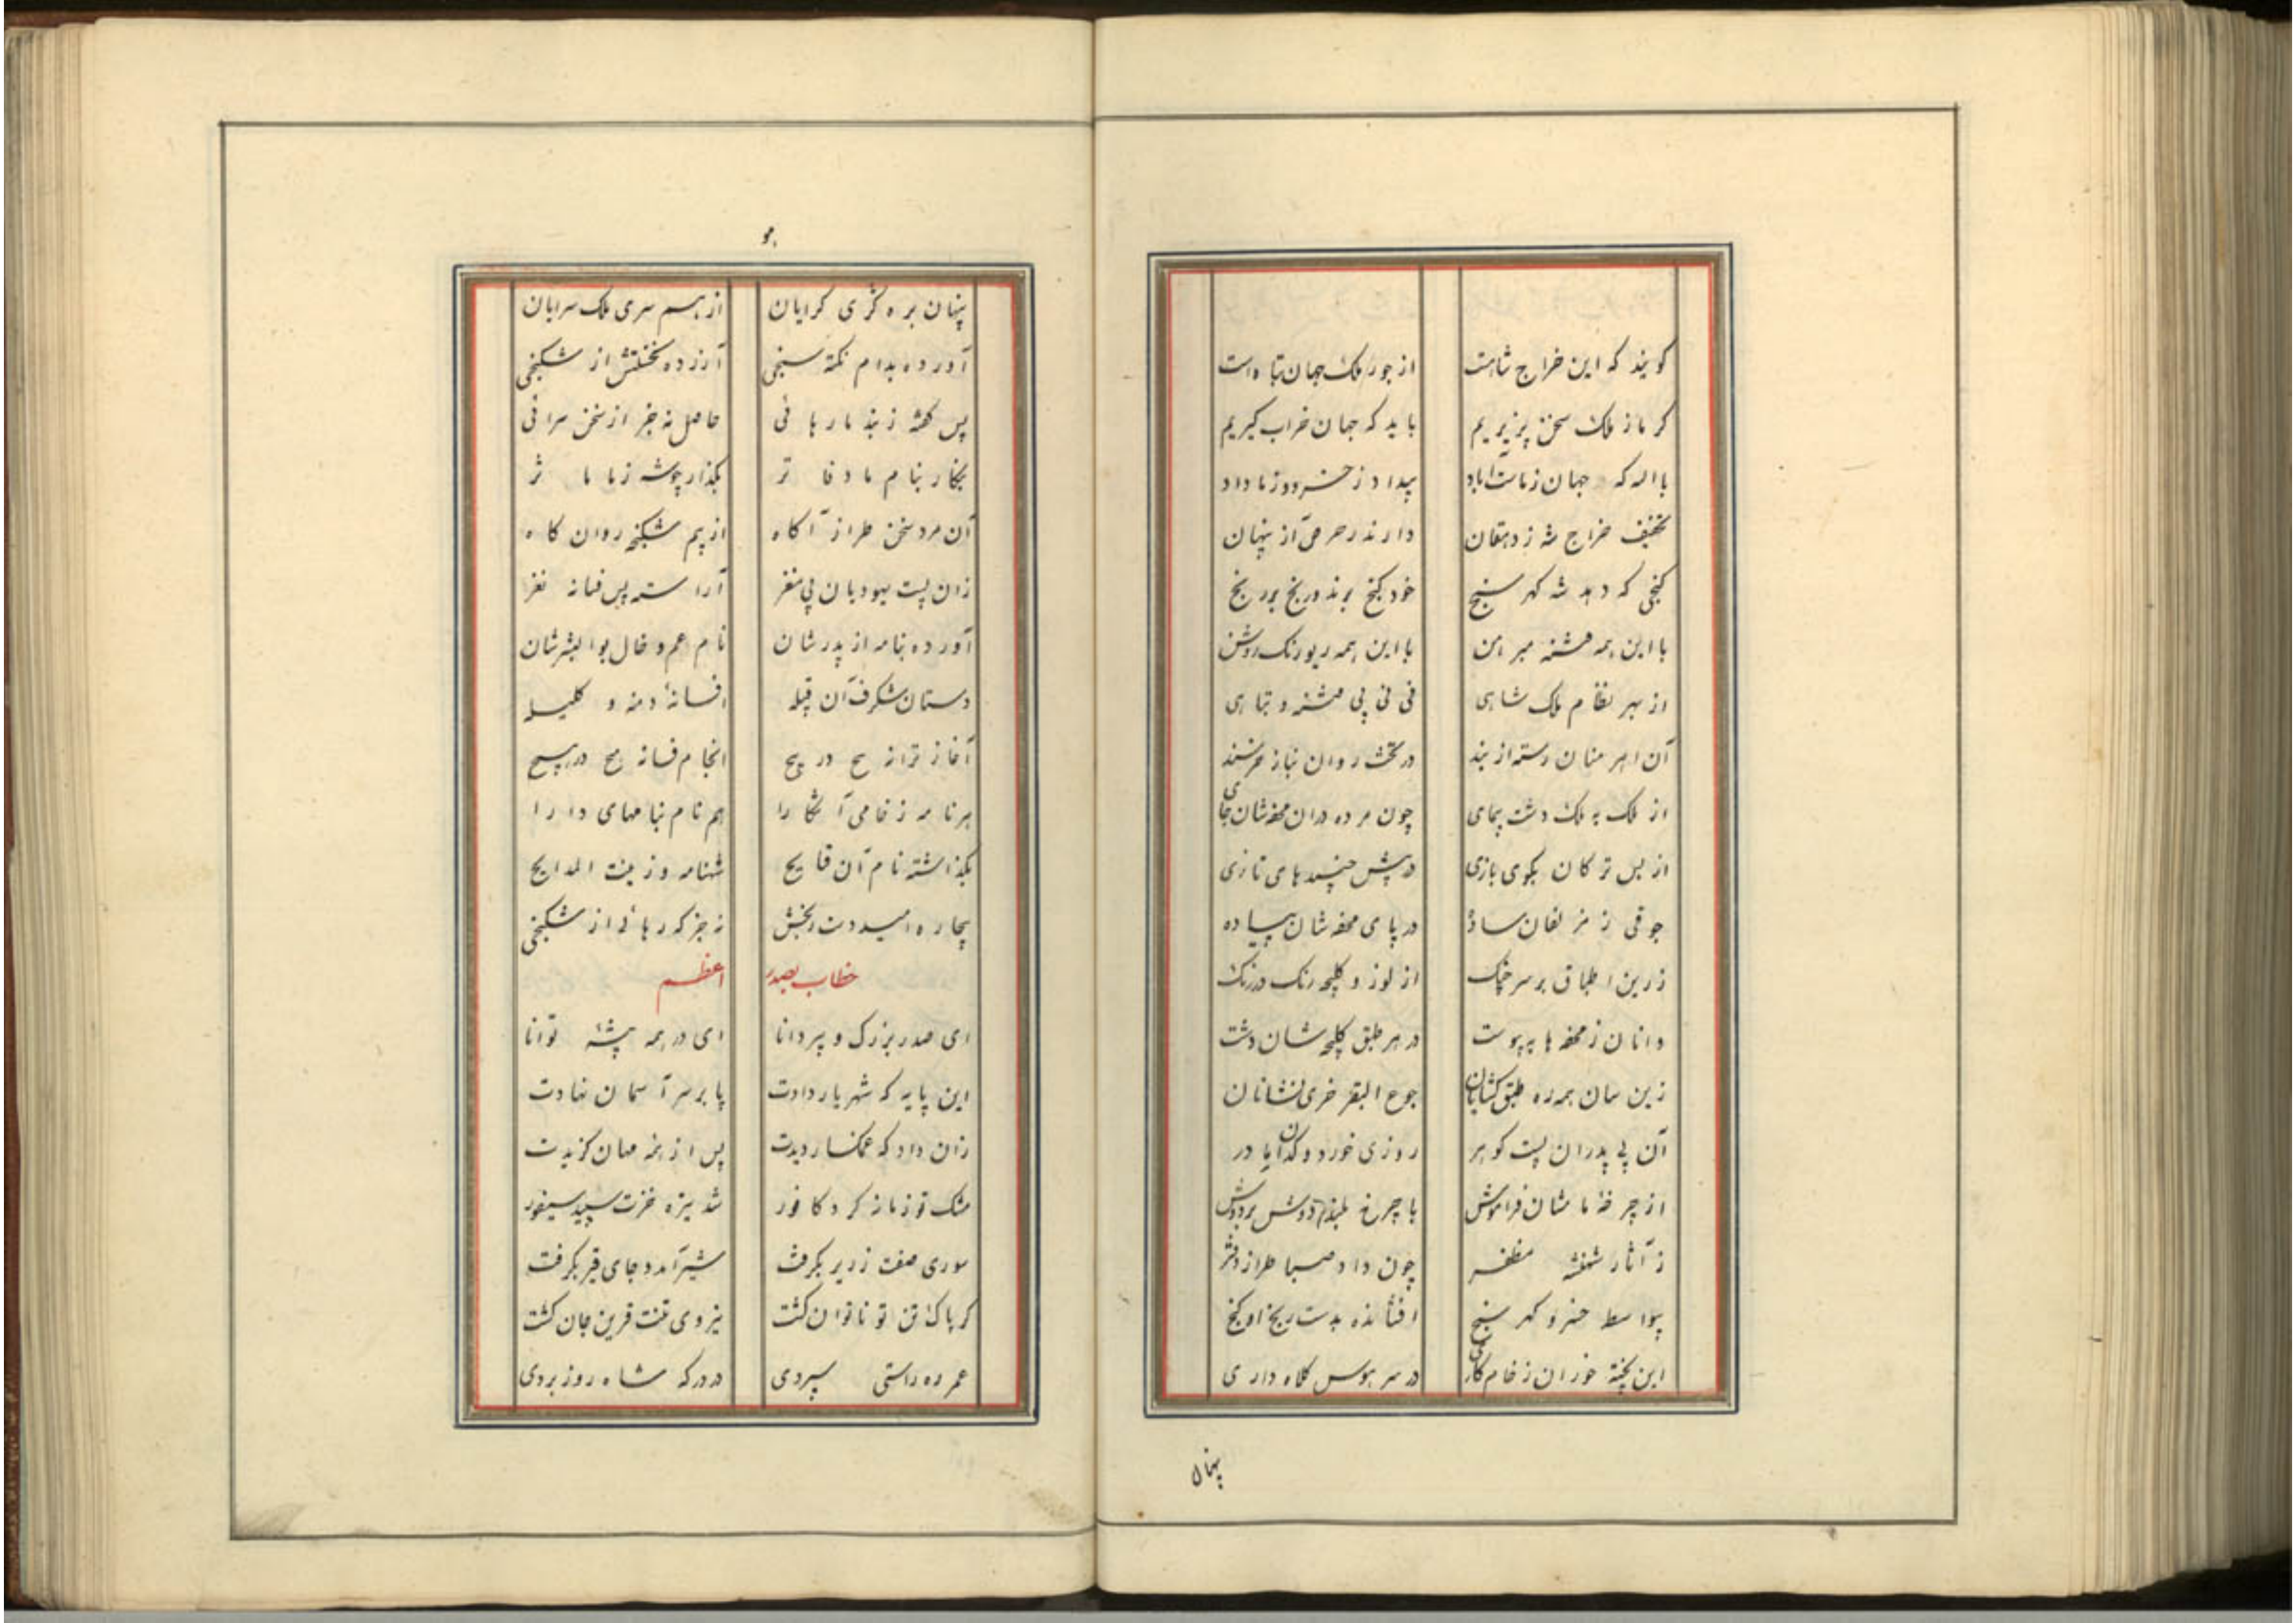 کویند که این خراج شاهت از جور ملک جهان تباه است
کر ما ز ملک سخن پزیریم باید که جهان خراب کیریم
با اله که جهان ز ماست آباد بیداد ز خسرو و ز ما داد
تخفیف خراج شه ز دهقان دارند ز حرص آز پنهان
کنجی که دهد شه کهر سنج خود کنج برند و رنج بر رنج
با این همه فتنه مبرهن با این همه ریو رنک روشن
از بهر نظام ملک شاهی نی نی پی فتنه و تباهی
آن اهرمنان رسته از بند در تخت روان بناز خرسند
از ملک به ملک دشت پیمای چون مرده در آن محفه‌شان جای
از بس ترکان بکوی بازی در پیش جنیبه‌های تازی
جوقی ز مزلفان ساده در پای محفه‌شان پیاده
زرین اطباق بر سر از لوز و کلیچه رنک در رنک
وانان ز محفه‌ها به پیوست در هر طبق کلیچه‌شان دست
زین سان همه ره طبق کشانان جوع البقر خری نشانان
آن بی پدران پست کوهر روزی خور دودکدایان در
از چرخه مامشان فراموش با چرخ بلند دوش بر دوش
ز آثار شهنشه مظفر چون داد صبا طراز دفتر
بیواسطه خسرو کهر سنج افشانده بدست رنج او کنج
این پخته خوران ز خام کاری در سر هوس کلاه داری
پنهان
پنهان بره کژی کرایان از هم سری ملک سرایان
آورده بدام نکته سنجی آزرده نخستش از شکنجی
پس کفته ز بند ما رهائی حاصل نه جز از سخن سرائی
بنکار بنام ما دفاتر بکذار چو شه ز ما مآثر
آن مرد سخن طراز آکاه از بیم شکنجه روان کاه
زان پست یهودیان بی مغز آراسته پس فسانه نغز
آورده بنامه از پدرشان نام عم و خال بوالبشرشان
دستان شکرف آن قبیله افسانهٔ دمنه و کلیله
آغاز ترانه هیچ در هیچ انجام فسانه هیچ در هیچ
هر نامه ز خامی آشکارا هم نام بنامهای دارا
بکذاشته نام آن قبایح شهنامه و زینت المدایح
بیچاره امید دست رنجش نه جز که رهائی از شکنجش
خطاب بصدر اعظم
ای صدر بزرک و پیر دانا ای در همه پیشه توانا
این پایه که شهریار دادت پا بر سر آسمان نهادت
زان داد که غمکسار دیدت پس از همه مهان کزیدت
مشک تو زمانه کرد کافور شد تیره خزت سپید سیفور
موری صفت زریر بکرفت شیر آمد و جای قیر بکرفت
کر پاک تن تو ناتوان کشت نیروی تنت قرین جان کشت
عمر ره راستی سپردی در درکه شاه روز بردی